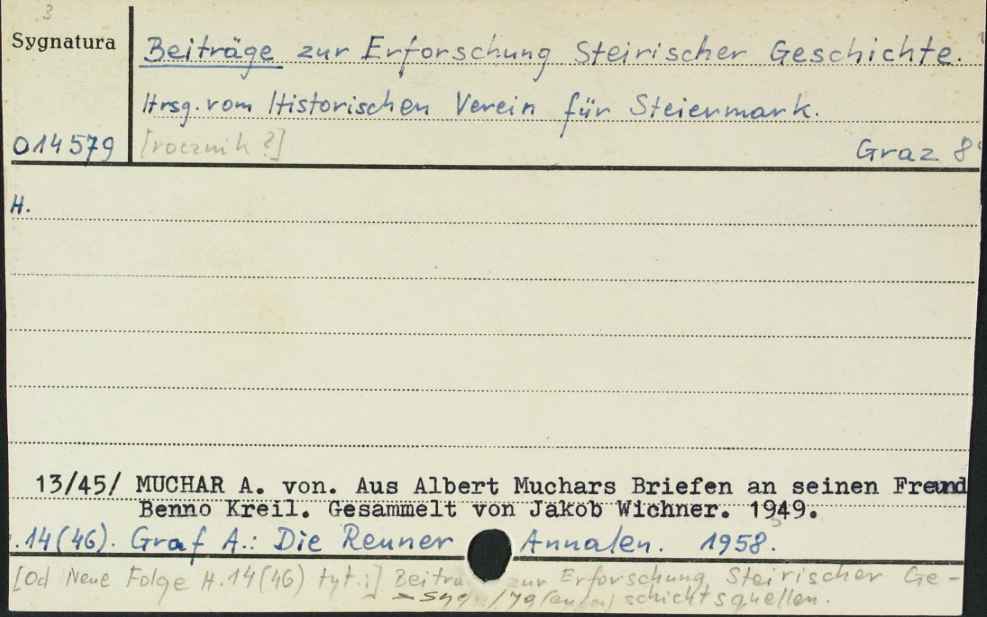 3
Sygnatura
Beiträge zur Erforschung Steirischer Geschichte.
Hrsg. vom Historischen Verein für Steiermark.
014579 [rocznik ?] Graz 8°
H.
13/45/ MUCHAR A. von. Aus Albert Muchars Briefen an seinen Freund
Benno Kreil. Gesammelt von Jakob Wichner. 1949.
14(46). Graf A.: Die Reuner Annalen. 1958.
[Od Neue Folge H.14(46) tyt.:] Beitra zur Erforschung Steirischer Ge-
schichtsquellen.